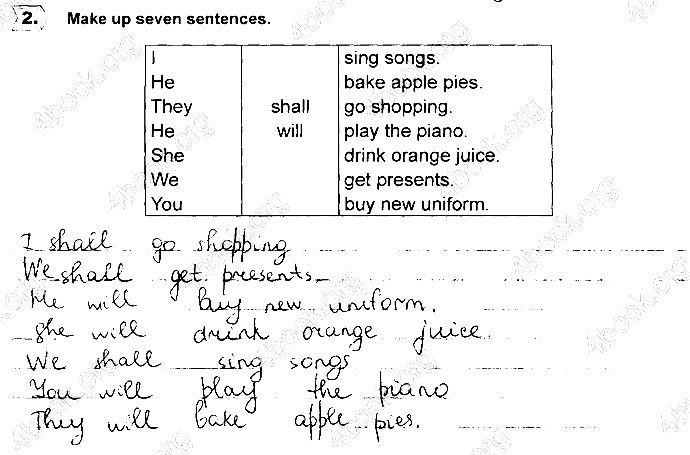 2. Make up seven sentences.
I sing songs.
He bake apple pies.
They shall go shopping.
He will play the piano.
She drink orange juice.
We get presents.
You buy new uniform.
I shall go shopping
We shall get presents
He will buy new uniform.
She will drink orange juice
We shall sing songs
You will play the piano
They will bake apple pies.
4book.org